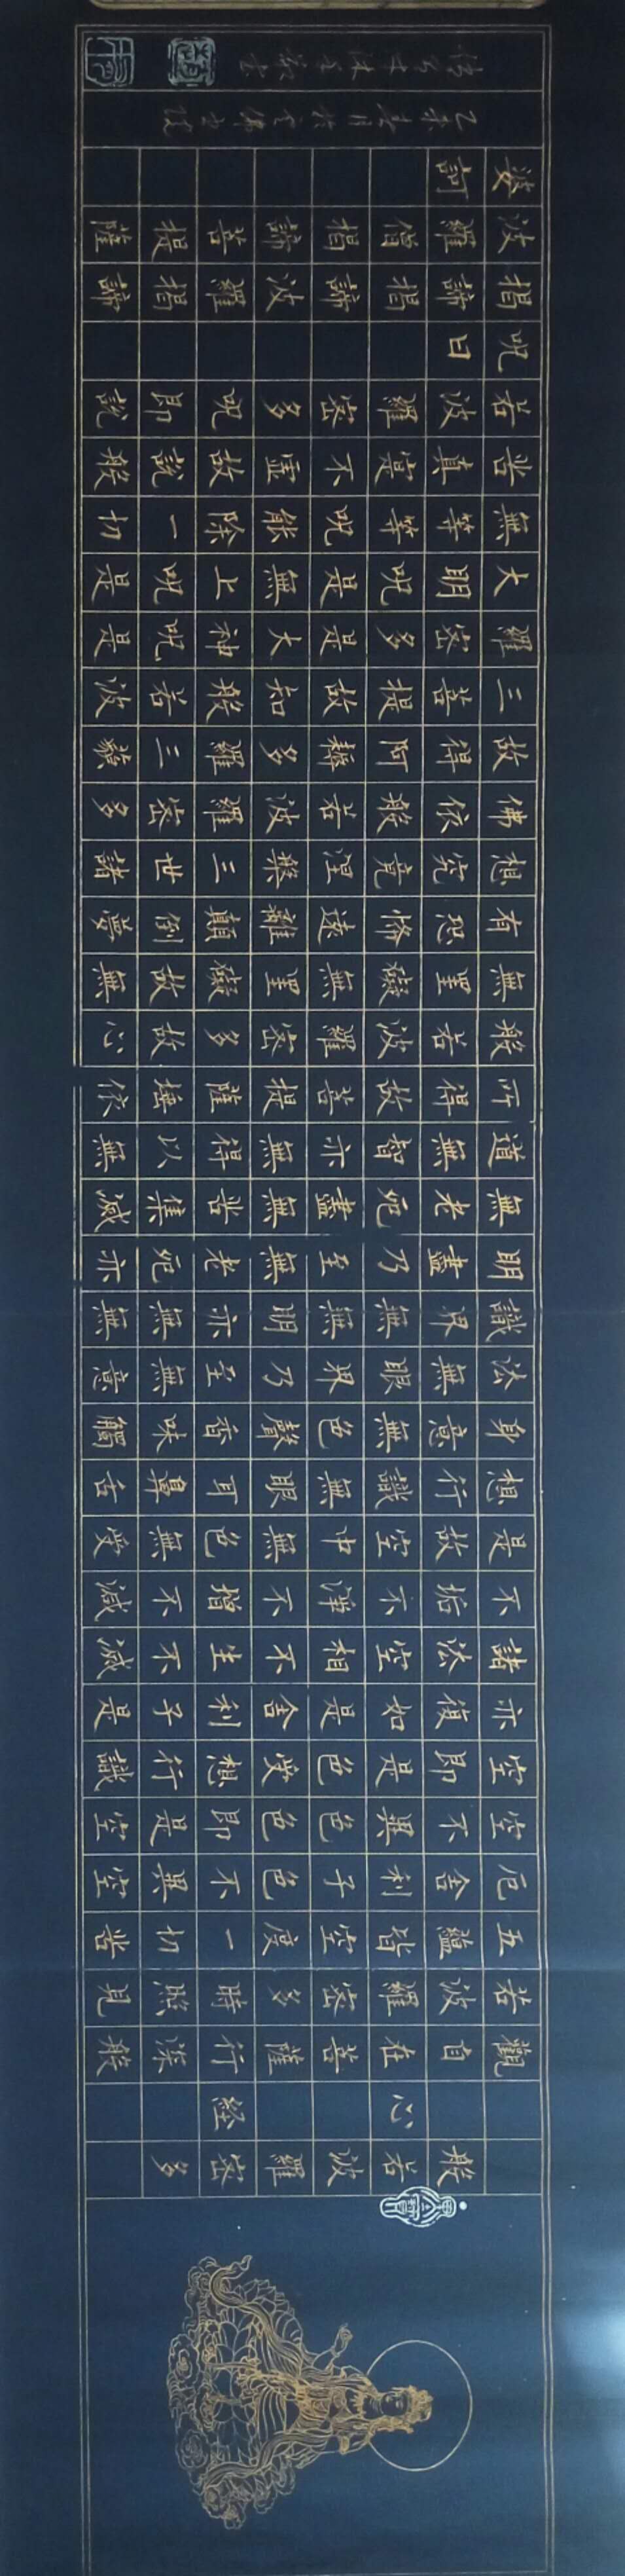 般若波羅密多
心経
觀自在菩薩行深般
若波羅密多時照見
五蘊皆空度一切苦
厄舍利子色不異空
空不異色色即是空
空即是色受想行識
亦復如是舍利子是
諸法空相不生不滅
不垢不淨不增不減
是故空中無色無受
想行識無眼耳鼻舌
身意無色聲香味觸
法無眼界乃至無意
識界無無明亦無無
明盡乃至無老死亦
無老死盡無苦集滅
道無智亦無得以無
所得故菩提薩埵依
般若波羅密多故心
無罣礙無罣礙故無
有恐怖遠離顛倒夢
想究竟涅槃三世諸
佛依般若波羅密多
故得阿耨多羅三藐
三菩提故知般若波
羅密多是大神呪是
大明呪是無上呪是
無等等呪能除一切
苦真實不虛故說般
若波羅密多呪即說
呪曰
揭諦揭諦波羅揭諦
波羅僧揭諦菩提薩
婆訶
乙未春月於